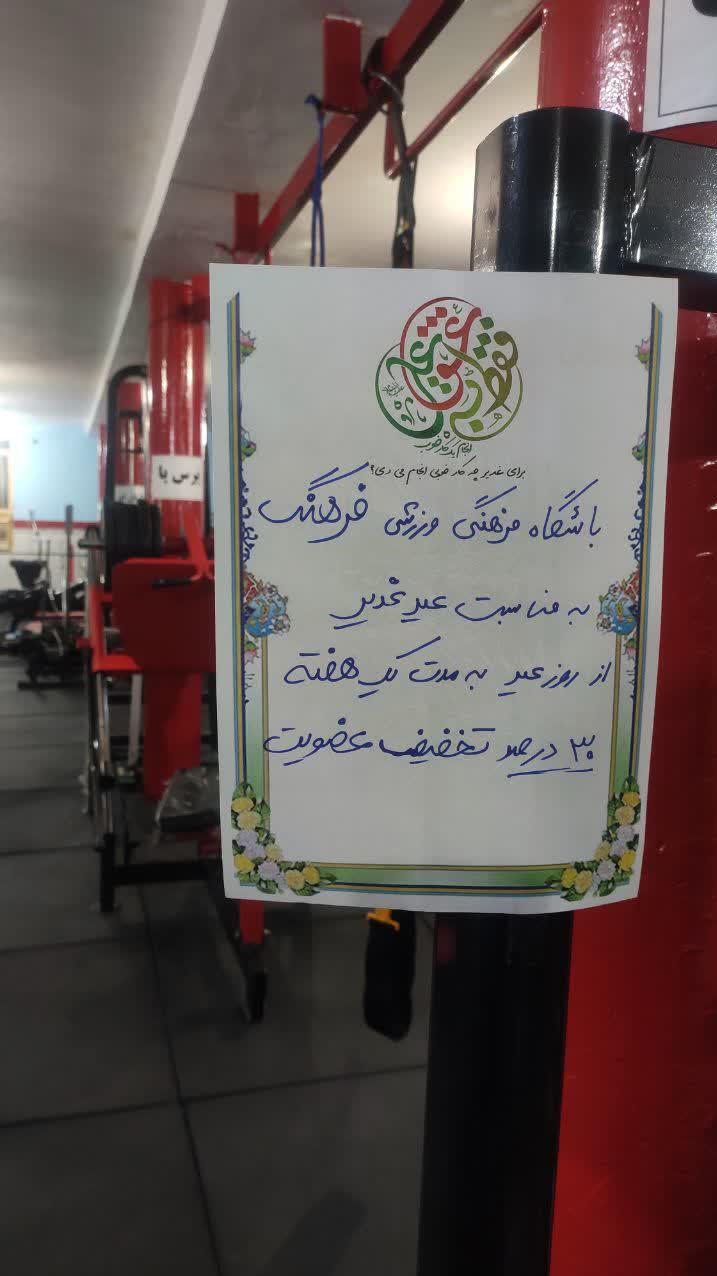 فقط به عشق علی
انجام یک کار خوب
برای غدیر چه کار خوبی انجام می دی؟
باشگاه فرهنگی ورزشی فرهنگ
به مناسبت عید غدیر
از روز عید به مدت یک هفته
۳۰ درصد تخفیف عضویت
پرس پا